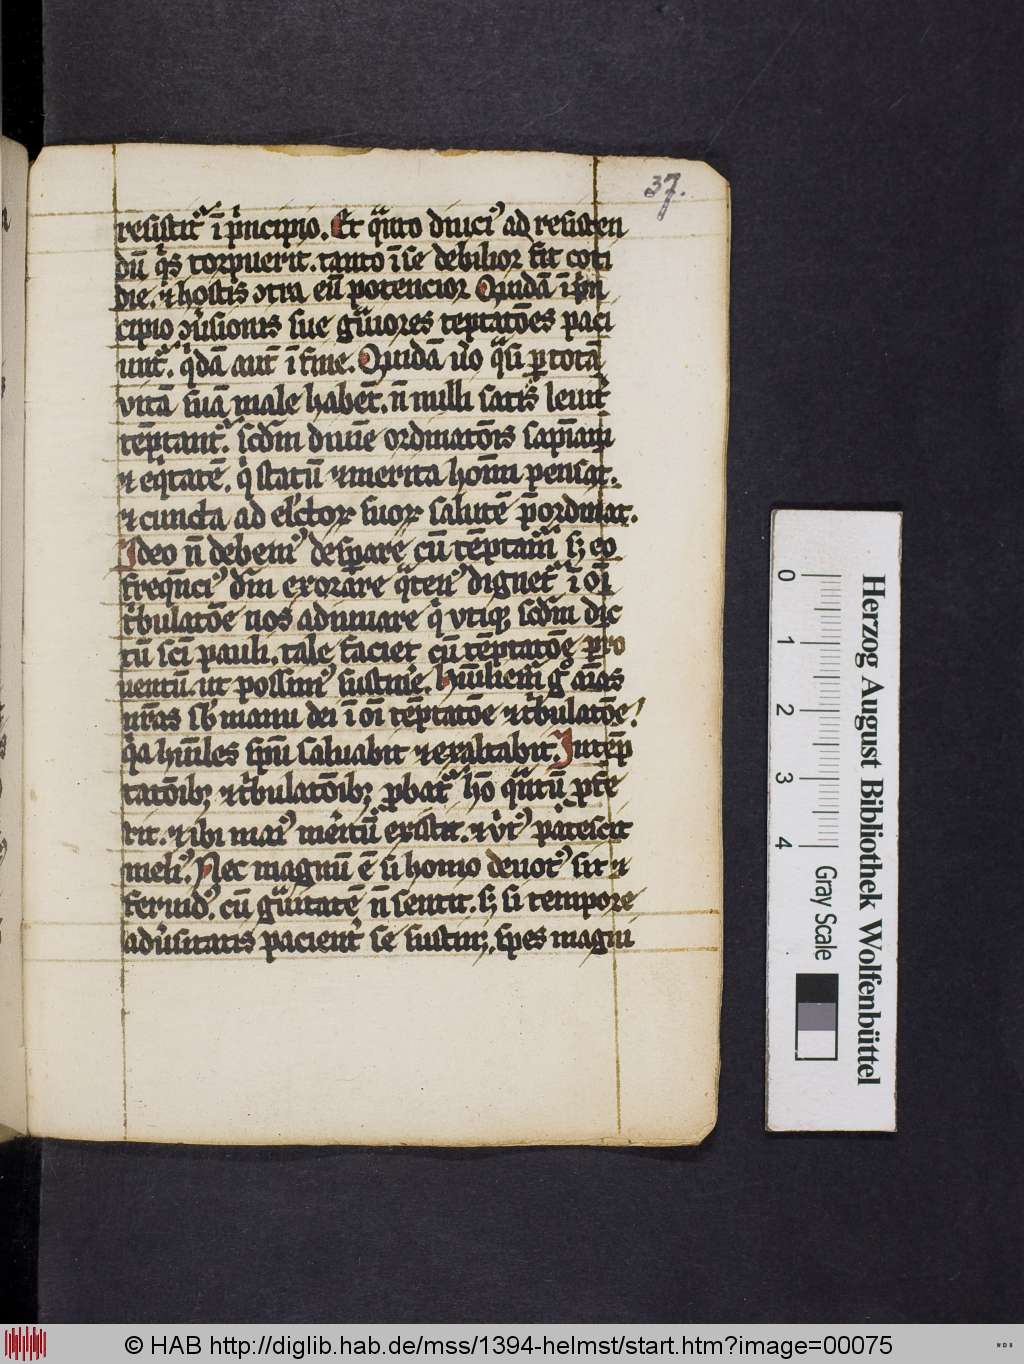 37.
resistit᷑ ī p̄ncipio. Et qͣnto diuciꝰ ad resisten
dū qͥs torpuerit. tanto ī se debilior fit coti
die. ⁊ hostis ↄtra eū potencior Quidā ī pͥn
cipio ↄuͥsionis sue gͣuiores teptatōes paci
unt᷑. qͥdā aut̄ ī fine. Quidā uͦo qͣsi ꝑ totā
vitā suā male habēt. n̄ nulli satis leuit᷑
tēptant᷑. scdm diuīe ordinatōis sapīam
⁊ eqͥtatē. qͥ statū ⁊ merita hoīm pensat.
⁊ cuncta ad elc̄toꝝ suoꝝ salutē p̄ordinat.
Ideo n̄ debemꝰ despare cū tēptamͬ sꝫ eo
freqn̄ciꝰ dm̄ exorare qͣtenꝰ dignet᷑ ī oī
tͥbulatōe nos adiuuare qͥ vtiqꝫ scdm dic
tū scī pauli. tale faciet cū tēptatōe pro
uentū. ut possimꝰ sustinͤe. hūiliemꝰ gͦ aīas
nr̄as sb̄ manu dei ī oī tēptatōe ⁊ tͥbulatōe!
qͥa hūiles spū saluabit ⁊ exaltabit. In tēp
tatōibꝫ ⁊ tͥbulatōibꝫ ꝓbat᷑ hō qͣntū ꝓfe
cit. ⁊ ibi maiꝰ meͥtū existit. ⁊ vͥtꝰ patescit
meliꝰ. Nec magnū ē si homo deuotꝰ sit ⁊
feruidꝰ. cū gͣuitatē n̄ sentit. sꝫ si tempore
aduͥsitatis pacient᷑ se sustinꝫ. spes magni
Herzog August Bibliothek Wolfenbüttel
0 1 2 3 4 Gray Scale
© HAB http://diglib.hab.de/mss/1394-helmst/start.htm?image=00075